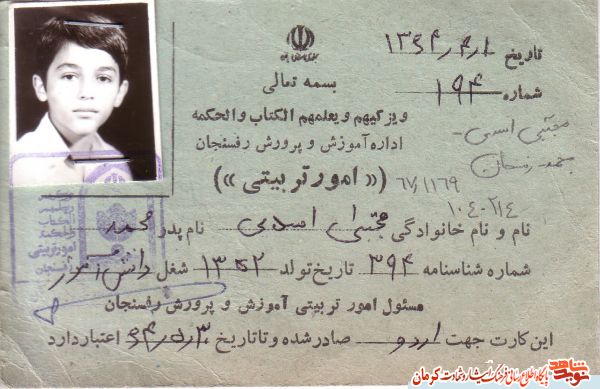 تاریخ ۱۳۶۴/۴/۱
شماره ۱۹۴
بسمه تعالی
ویزگیهم ویعلمهم الکتاب والحکمه
اداره آموزش و پرورش رفسنجان
(« امور تربیتی »)
مجتبی اسدی
۶۷/۱۱۶۹
۱۰۴-۲۱۴
نام و نام خانوادگی مجتبی اسدی نام پدر محمد
شماره شناسنامه ۳۹۴ تاریخ تولد ۱۳۵۲ شغل دانش آموز
مسئول امور تربیتی آموزش و پرورش رفسنجان
این کارت جهت اردو صادر شده و تا تاریخ ۶۴/۵/۳۰ اعتبار دارد
نوید شاهد
پایگاه اطلاع رسانی فرهنگ ایثار و شهادت کرمان